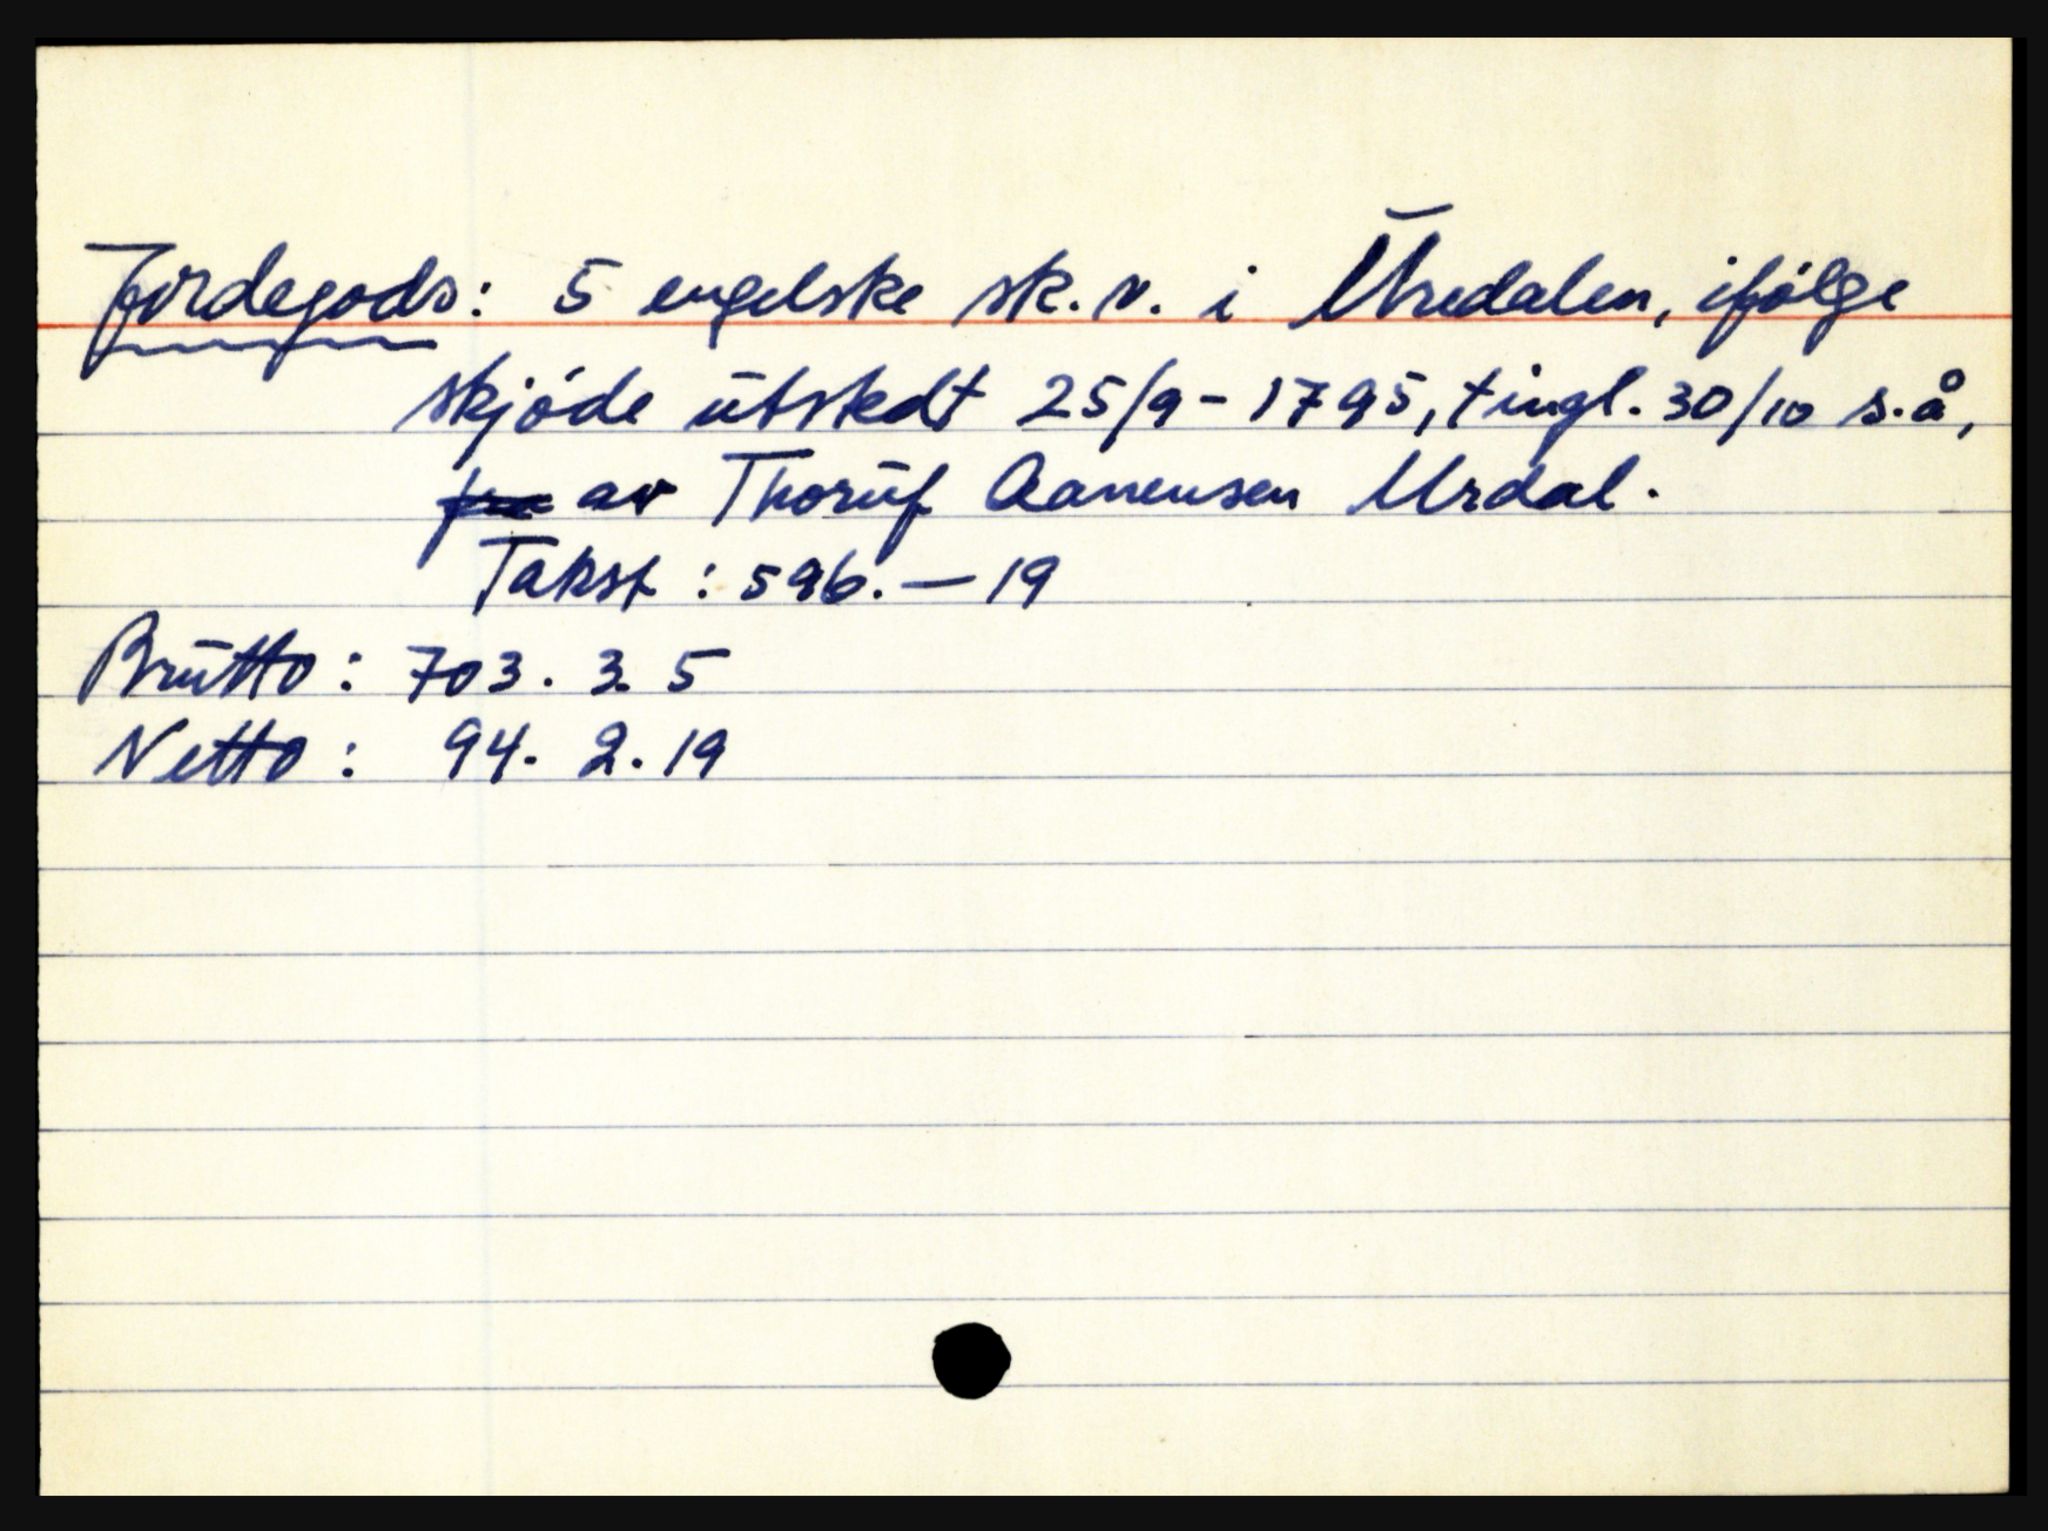 Jordegods: 5 engelske sk. v. i Uredalen, ifølge
skjøde utstedt 25/9 - 1795, tingl. 30/10 s.å,
av Thoruf Aanensen Urdal.
Takst : 596. — 19
Brutto : 703. 3. 5
Netto : 94. 2. 19